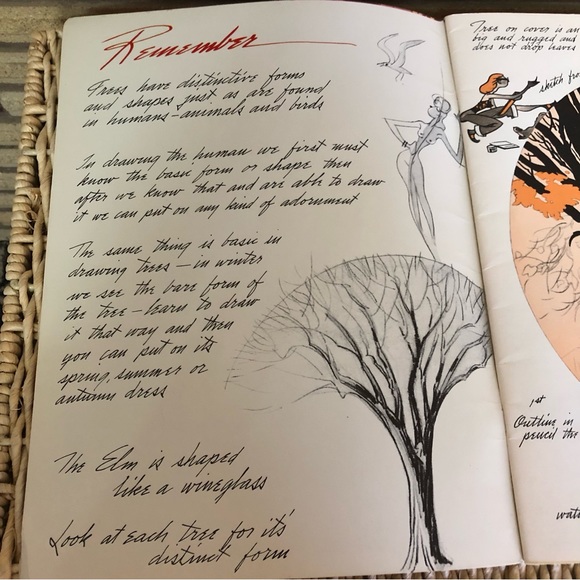 Remember
Trees have distinctive forms
and shapes just as are found
in humans-animals and birds
In drawing the human we first must
know the basic form or shape then
after we know that and are able to draw
it we can put on any kind of adornment
The same thing is basic in
drawing trees - in winter
we see the bare form of
the tree - learn to draw
it that way and then
you can put on its
spring, summer or
autumn dress
The Elm is shaped
like a wineglass
Look at each tree for it's
distinct form
Tree on cover is an
big and rugged and
does not drop leaves
sketch fro
1st
Outline in
pencil the
wate